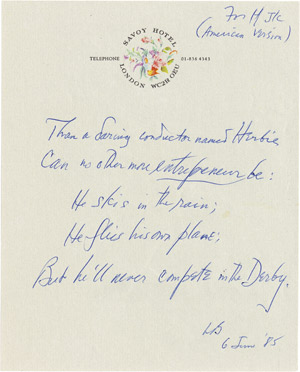 For H JK
(American Version)
SAVOY HOTEL
TELEPHONE 01-836 4343
LONDON WC2R 0EU
Than a daring conductor named Herbie
Can no other more entrepreneur be:
He skis in the rain;
He flies his own plane;
But he'll never compete in the Derby.
LB
6 June '85